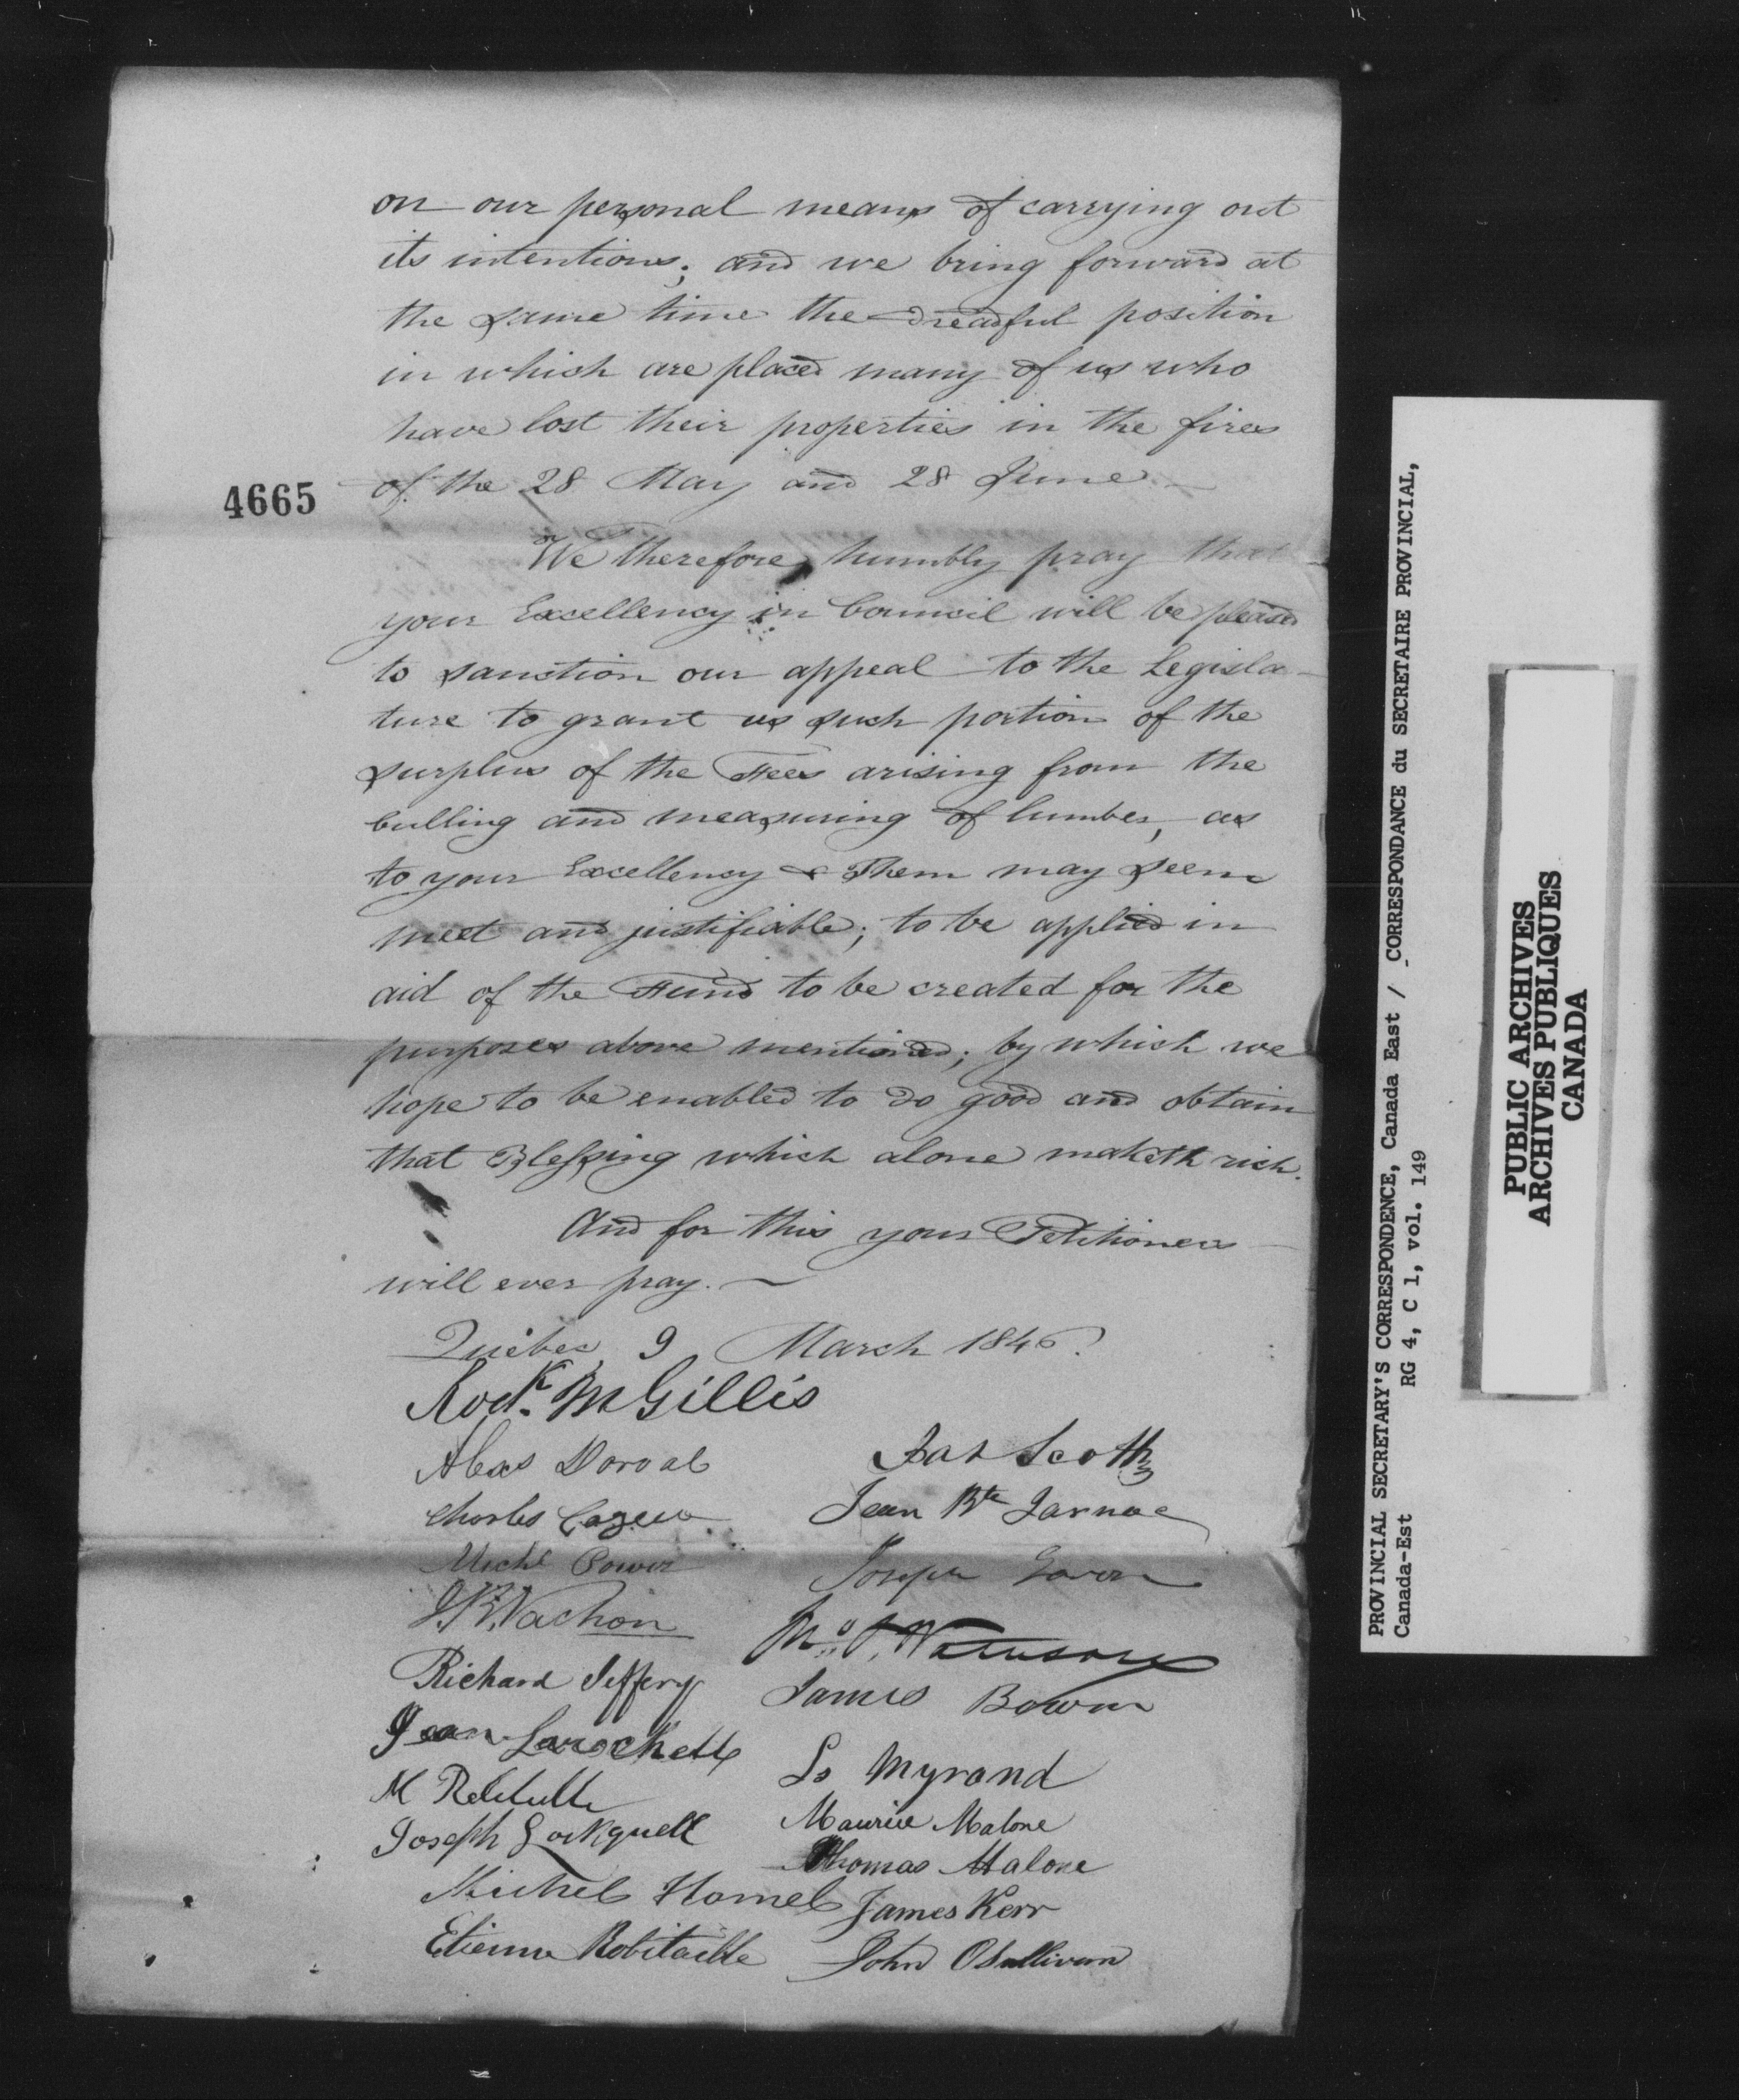 on our personal means of carrying out
its intentions; and we bring forward at
the same time the dreadful position
in which are placed many of us who
have lost their properties in the fires
of the 28 May and 28 June
4665
We therefore humbly pray that
your Excellency in Council will be pleased
to sanction our appeal to the Legisla-
ture to grant us such portion of the
surplus of the Fees arising from the
culling and measuring of lumber, as
to your Excellency & Them may seem
meet and justifiable; to be applied in
aid of the Fund to be created for the
purposes above mentioned; by which we
hope to be enabled to do good and obtain
that Blessing which alone maketh rich.
And for this your Petitioners
will ever pray.
Quebec, 9 March 1846.
Rodk. McGillis
Alexs Dorval
Charles Cazeau
Michl Power
J.B. Vachon
Richard Jeffery
Jean Larochelle
M
Joseph Lockquell
Michel Hamel
Etienne Robitaille
Jas Scott
Jean Bte Jarnac
Joseph
James Bowen
Ls Myrand
Maurice Malone
Thomas Malone
James Kerr
John O Sullivan
PROVINCIAL SECRETARY'S CORRESPONDENCE, Canada East / CORRESPONDANCE du SECRETAIRE PROVINCIAL,
Canada-Est RG 4, C 1, vol. 149
PUBLIC ARCHIVES
ARCHIVES PUBLIQUES
CANADA